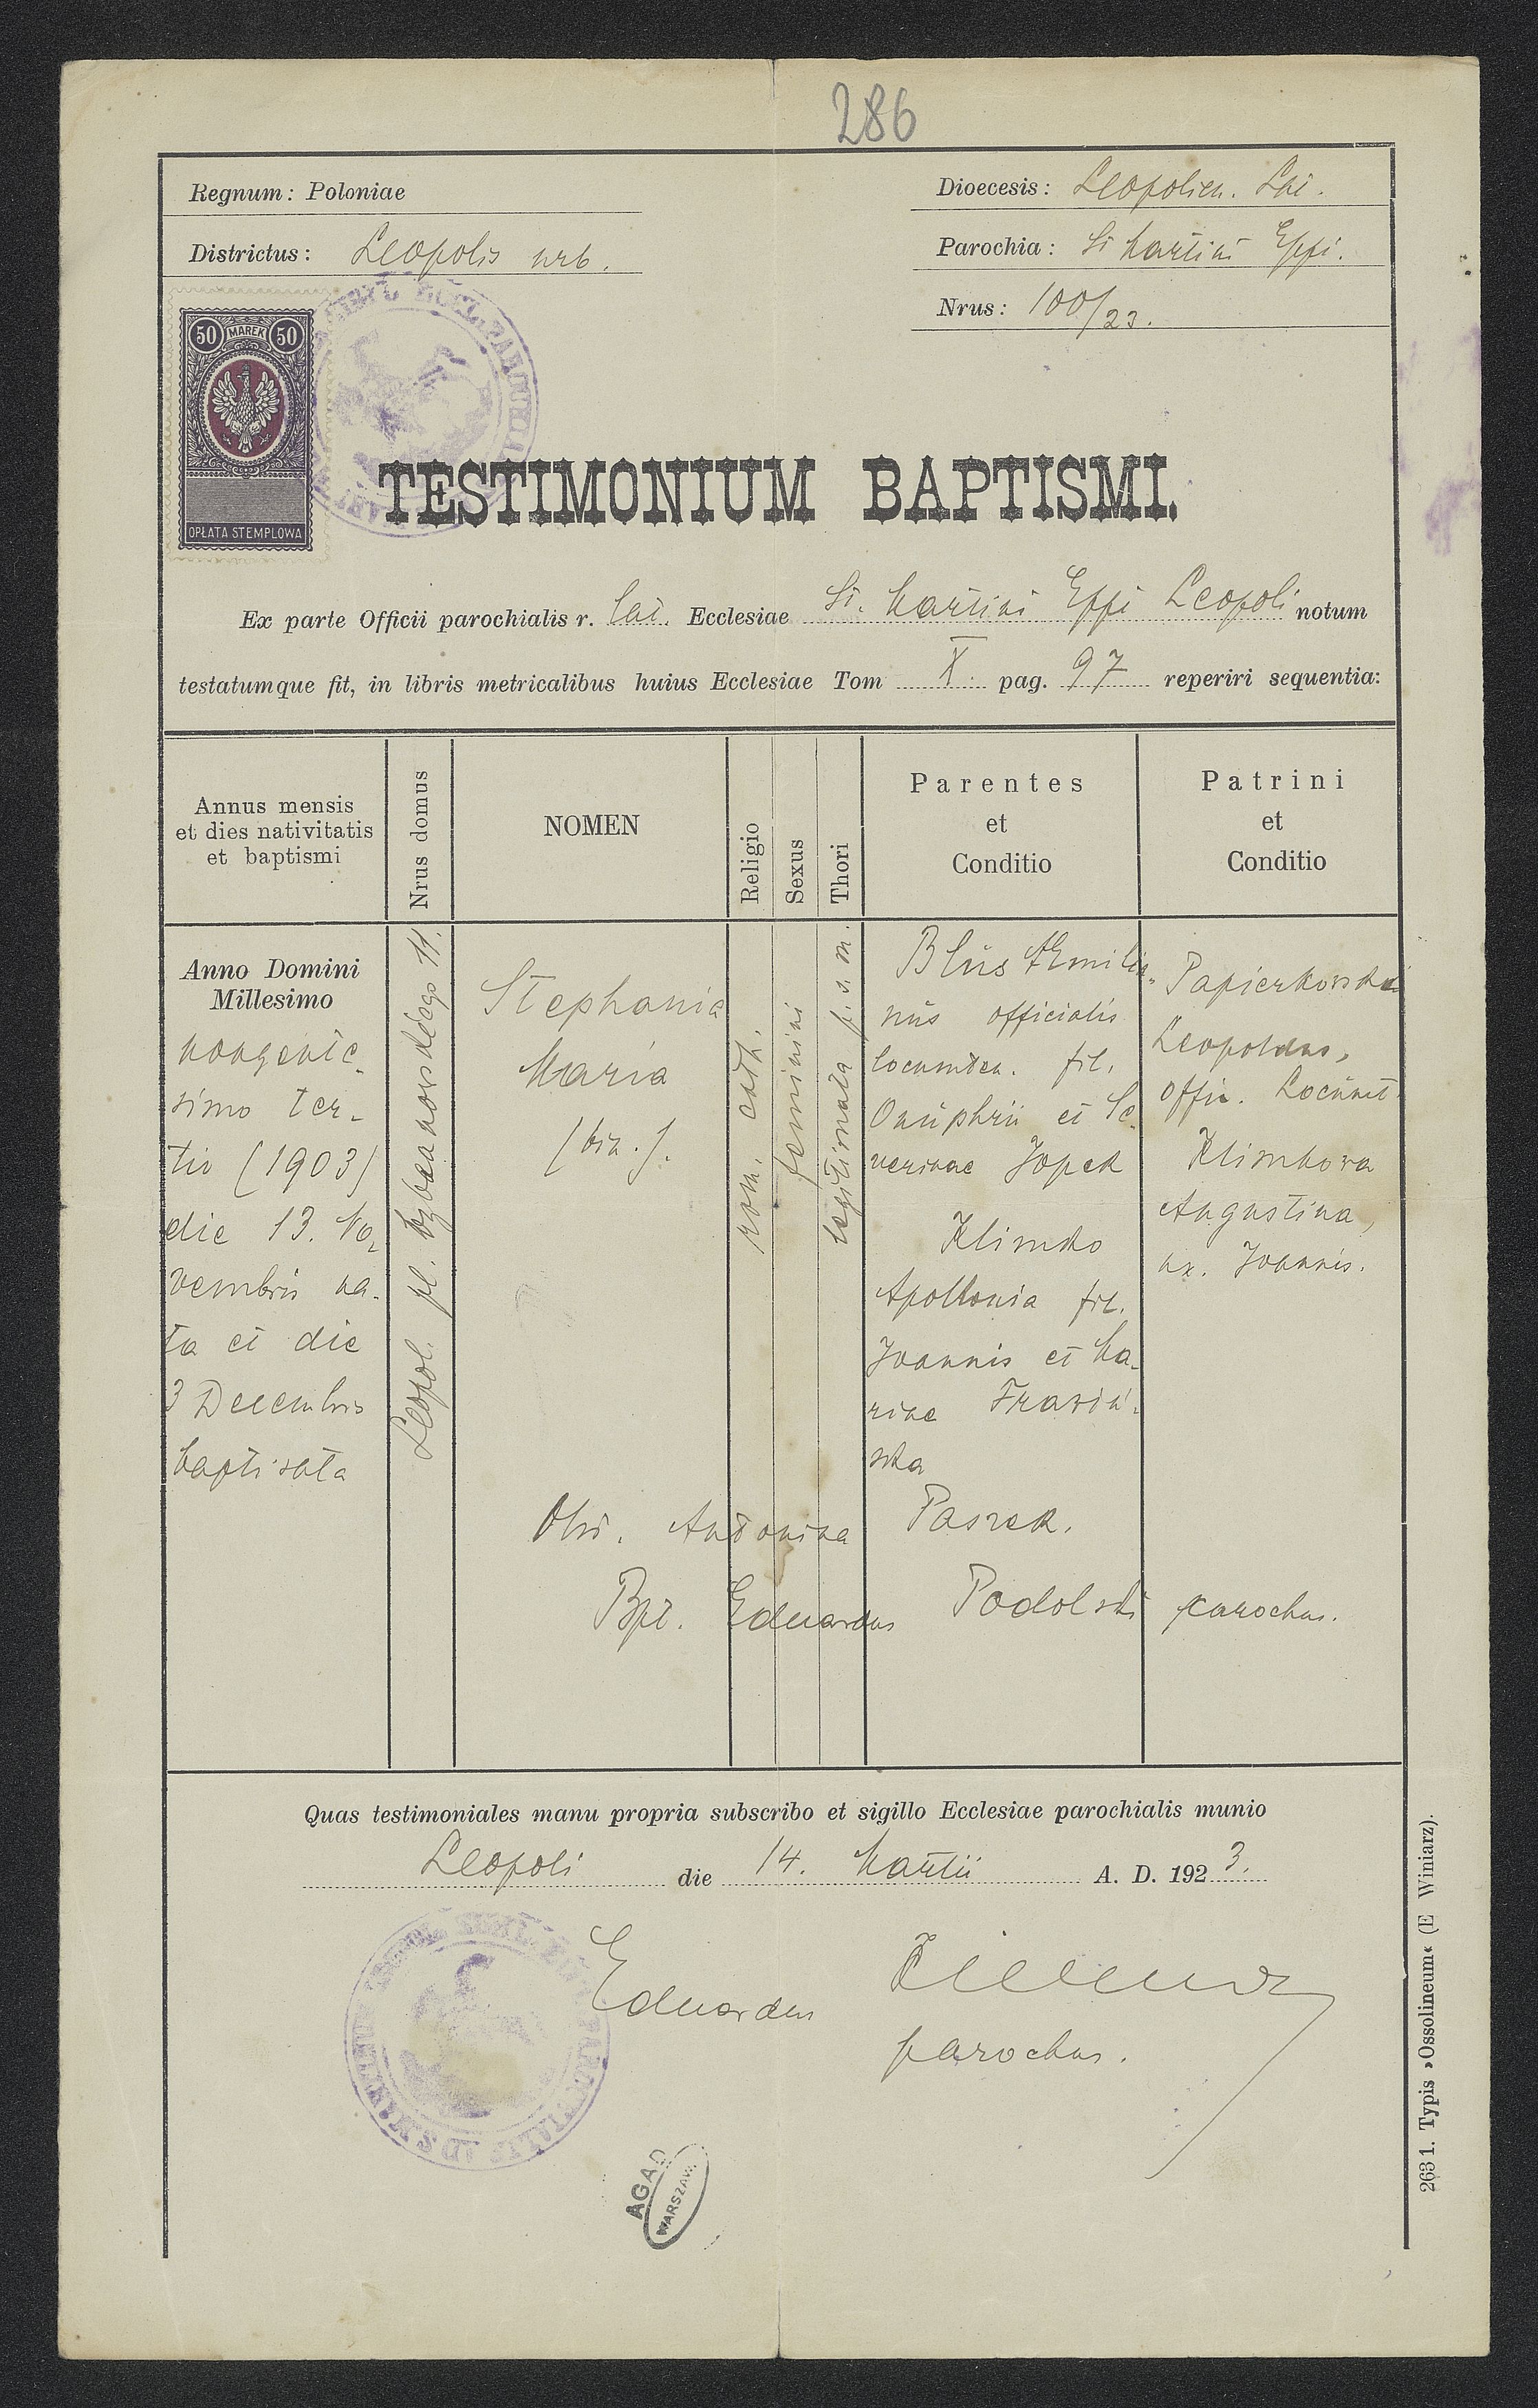 286
Regnum: Poloniae
Dioecesis: Leopolien. Lat.
Districtus: Leopolis urb.
Parochia: St Martini Eppi.
Nrus: 100/23.
50 MAREK 50
OPŁATA STEMPLOWA
TESTIMONIUM BAPTISMI.
Ex parte Officii parochialis r. lat. Ecclesiae St. Martini Eppi Leopoli notum
testatumque fit, in libris metricalibus huius Ecclesiae Tom X. pag. 97 reperiri sequentia:
Annus mensis
et dies nativitatis
et baptismi
Nrus domus
NOMEN
Religio
Sexus
Thori
Parentes
et
Conditio
Patrini
et
Conditio
Anno Domini
Millesimo
nongente-
simo ter-
tio (1903)
die 13. No-
vembris na-
ta et die
3 Decembris
baptisata
Leopol. pl. 11.
Stephania
Maria
(bin.).
rom. cath.
feminini
legitimata p. s. m.
Blus Aemilia-
nus officialis
locumten. fil.
Onuphrii et Se-
verinae Jopek
Klimko
Apollonia fil.
Joannis et Ma-
riae
ska
Papierkowski
Leopoldus,
offic. Locumt.
Klimkowa
Augustina,
ux. Joannis.
Obst. Antonina Paszek.
Bpt. Eduardus Podolski parochus.
Quas testimoniales manu propria subscribo et sigillo Ecclesiae parochialis munio
Leopoli die 14. Martii A. D. 1923.
Eduardus
parochus.
AGAD
WARSZAWA
2631. Typis »Ossolineum« (E Winiarz).